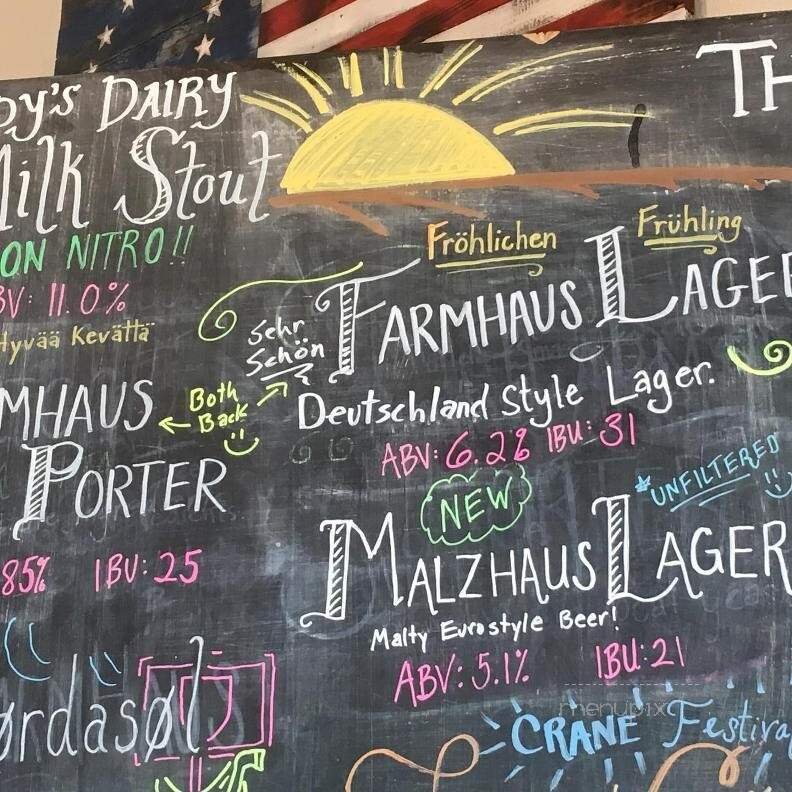 DY'S DAIRY
Milk Stout
ON NITRO!!
BV: 11.0%
Hyvää Kevättä
MHAUS
PORTER
85% IBU: 25
Both
Back
Sehr
Schön
TH
Fröhlichen Frühling
FARMHAUS LAGER
Deutschland Style Lager.
ABV: 6.2% IBU: 31
NEW
*UNFILTERED
MALZHAUS LAGER
Malty Eurostyle Beer!
ABV: 5.1% IBU: 21
menupix
ørdasøl
CRANE Festiva